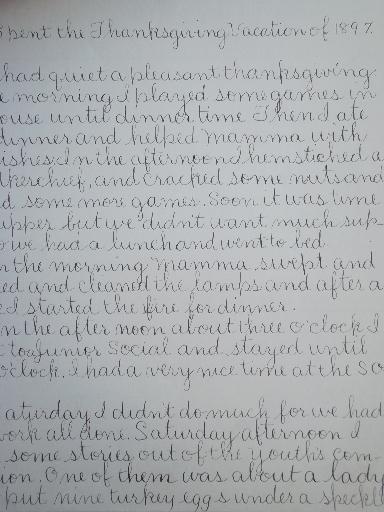 spent the Thanksgiving Vacation of 1897.
had quiet a pleasant thanksgiving.
morning I played some games in
ouse until dinner time Then I ate
dinner and helped Mamma with
ishes. In the afternoon I hemstiched a
kerchief, and cracked some nuts and
d some more games. Soon it was time
upper but we didn't want much sup-
we had a lunch and went to bed.
n the morning Mamma swept and
ed and cleaned the lamps and after a
I started the fire for dinner.
n the after noon about three o'clock I
to a Junior Social and stayed until
o'clock. I had a very nice time at the So
aturday I didn't do much for we had
work all done. Saturday afternoon I
some stories out of the youth's com-
ion. One of them was about a lady
put nine turkey eggs under a speckell